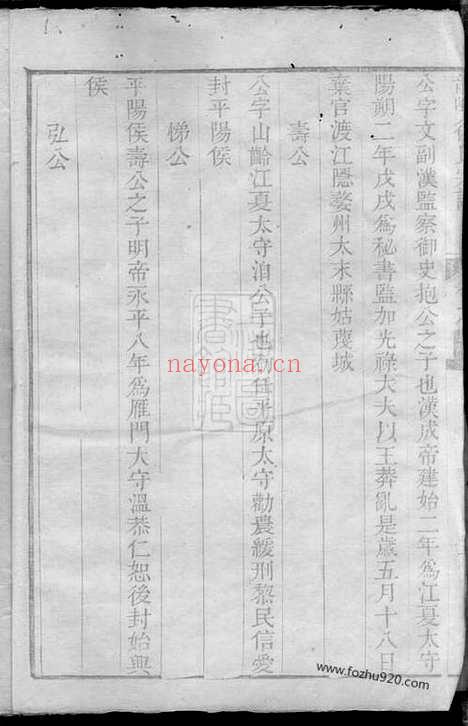 公字文副漢監察御史抱公之子也漢成帝建始二年為江夏太守
陽朔二年戊戌為秘書監加光祿大夫以王莽亂是歲五月十八日
棄官渡江隱婺州太末縣姑蔑城
壽公
公字山齡江夏太守洎公子也初任平原太守勸農緩刑黎民信愛
封平陽侯
悌公
平陽侯壽公之子明帝永平八年為雁門太守溫恭仁恕後封始興
侯
弘公
nayona.cn
www.fozhu920.com